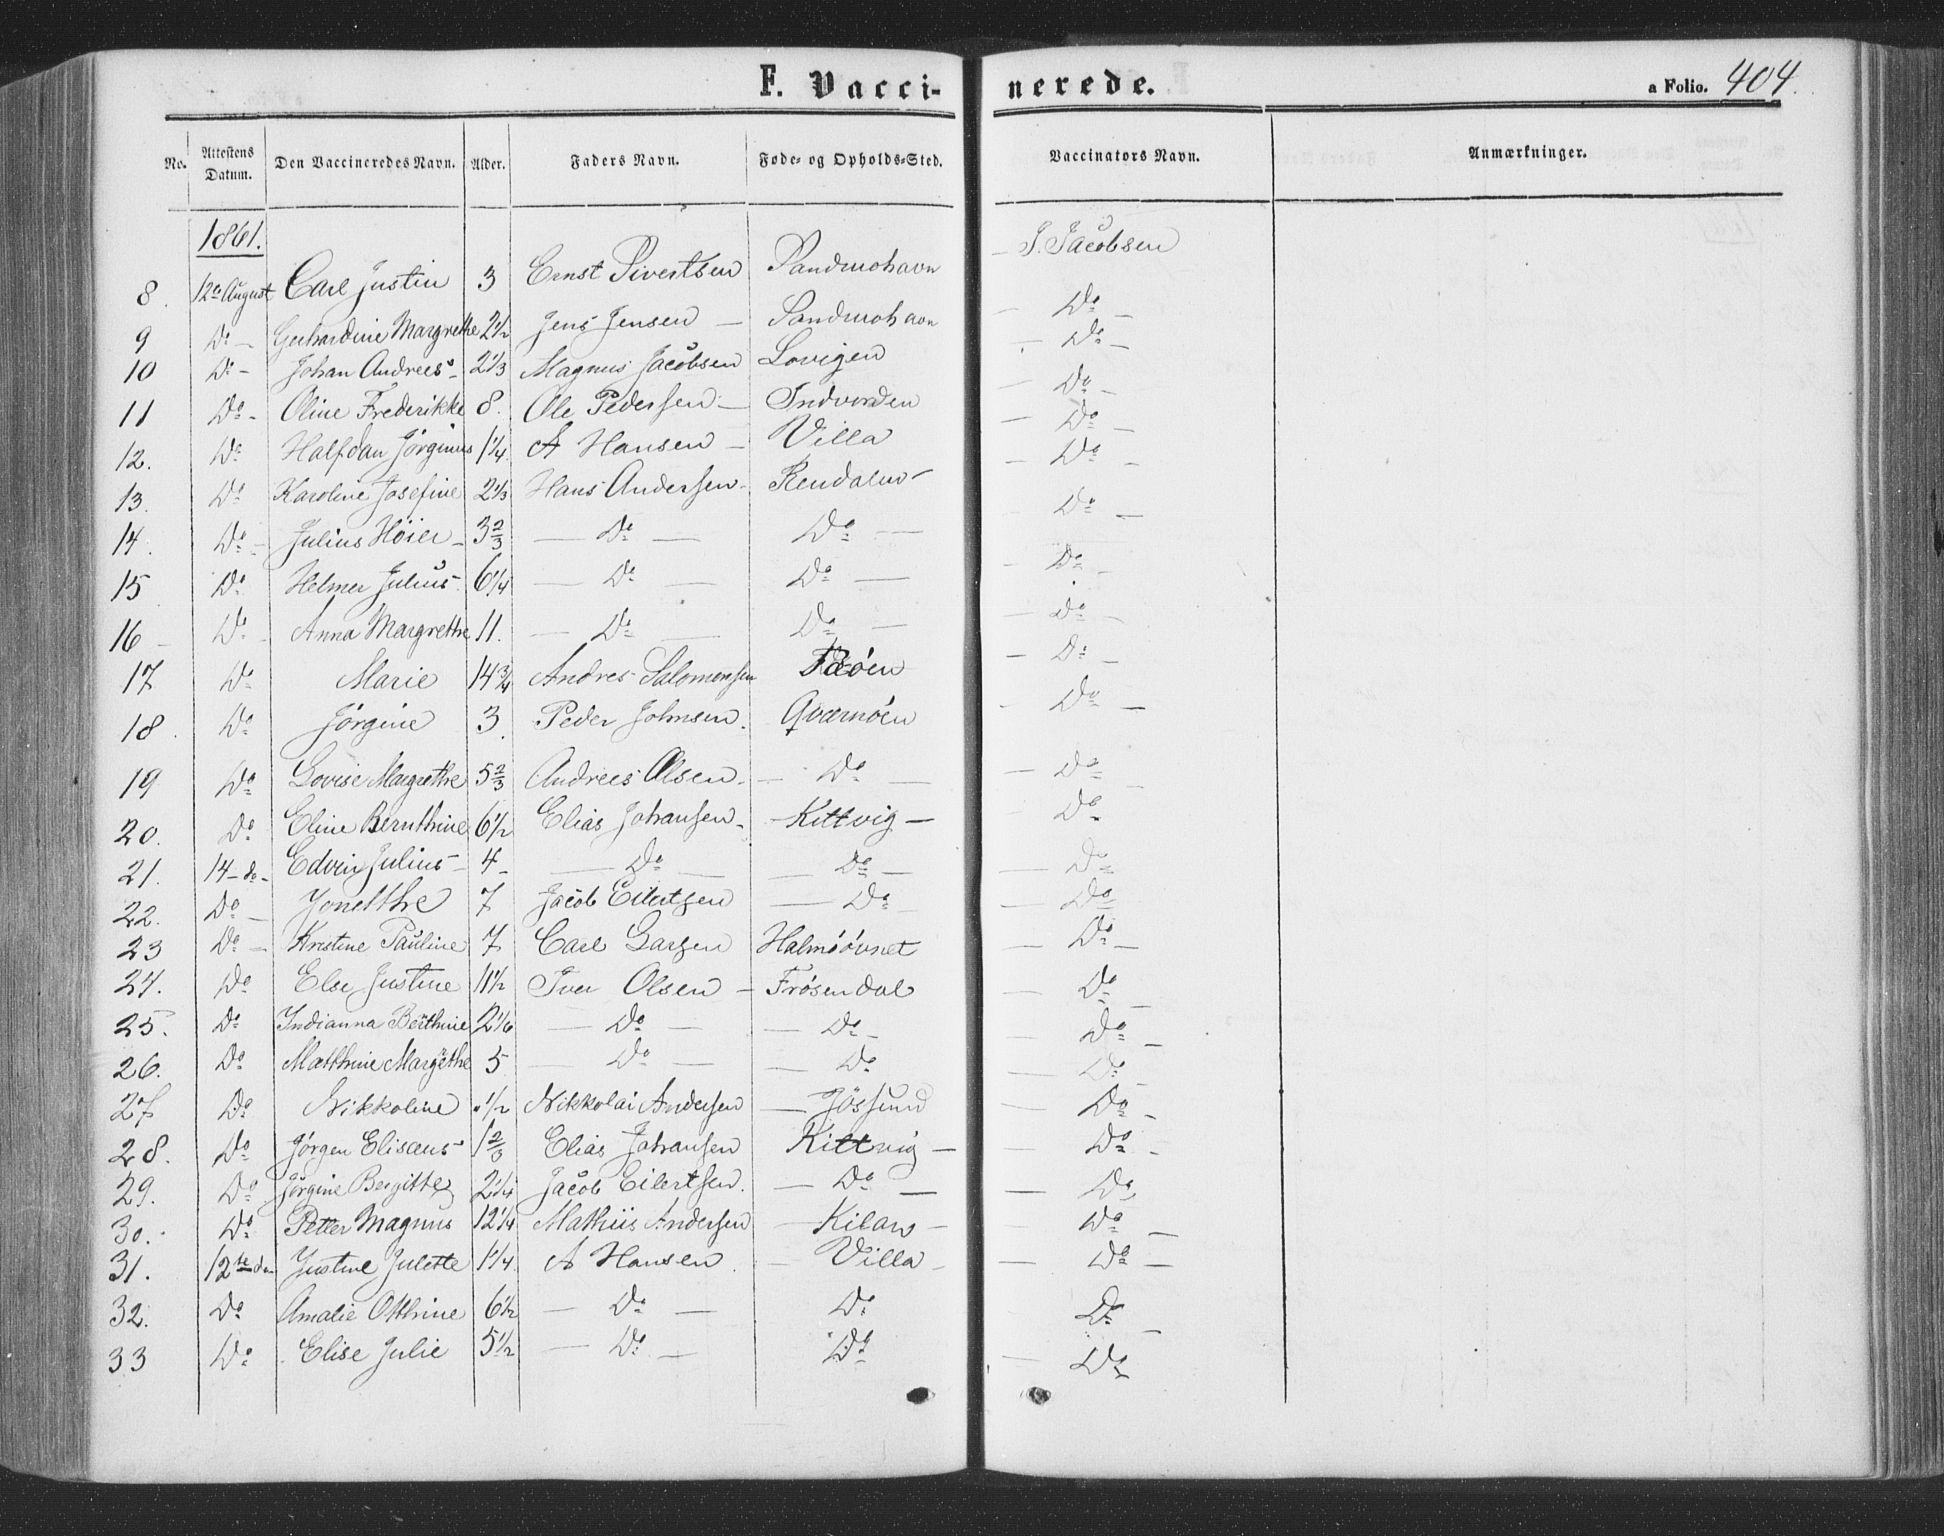 F. Vaccinerede. a Folio. 404.
No. Attestens Datum. Den Vaccineredes Navn. Alder. Faders Navn. Føde- og Opholds-Sted. Vaccinators Navn. Anmærkninger.
1861.
8. 12te August Carl Justin 3 Ernst Sivertsen Sandmohavn J. Jacobsen
9 Do Gerhardine Margrethe 2 1/2 Jens Jensen Sandmohavn Do
10 Do Johan Andreas 2 1/3 Magnus Jacobsen Lovigen Do
11 Do Oline Frederikke 8. Ole Pedersen Indvorden Do
12. Do Halfdan Jørginus 1 1/4 A Hansen Villa Do
13. Do Karoline Josefine 2 1/3 Hans Andersen Do
14. Do Julius Høier 3 2/3 Do Do Do
15 Do Helmer Julius 6 1/4 Do Do Do
16 Do Anna Margrethe 11. Do Do Do
17 Do Marie 14 3/4 Andres Salomonsen Do
18. Do Jørgine 3 Peder Johnsen Qværnøen Do
19 Do Lovise Margrethe 5 2/3 Andrees Olsen Do Do
20. Do Eline Bernthine 6 1/2 Elias Johansen Kittvig Do
21. 14 do Edvin Julius 4 Do Do Do
22. Do Jonetthe 7 Jacob Eilertsen Do Do
23 Do Kristine Pauline 7 Carl Larsen Halmøovnet Do
24. Do Else Justine 11 1/2 Iver Olsen Frøsendal Do
25. Do Indianna Berthine 2 1/6 Do Do Do
26. Do Matthine Margethe 5 Do Do Do
27 Do Nikkoline 1/2 Nikkolai Andersen Jøssund Do
28. Do Jørgen Elisæus Elias Johansen Kittvig Do
29. Do Jørgine Bergitte 2 1/4 Jacob Eilertsen. Do Do
30. Do Petter Magnus 12 1/4 Mathiis Andersen Kilan Do
31. 12te do Justine Julette 1 1/4 A Hansen Villa Do
32. Do Amalie Otthine 6 1/2 Do Do Do
33 Do Elise Julie 5 1/2 Do Do Do